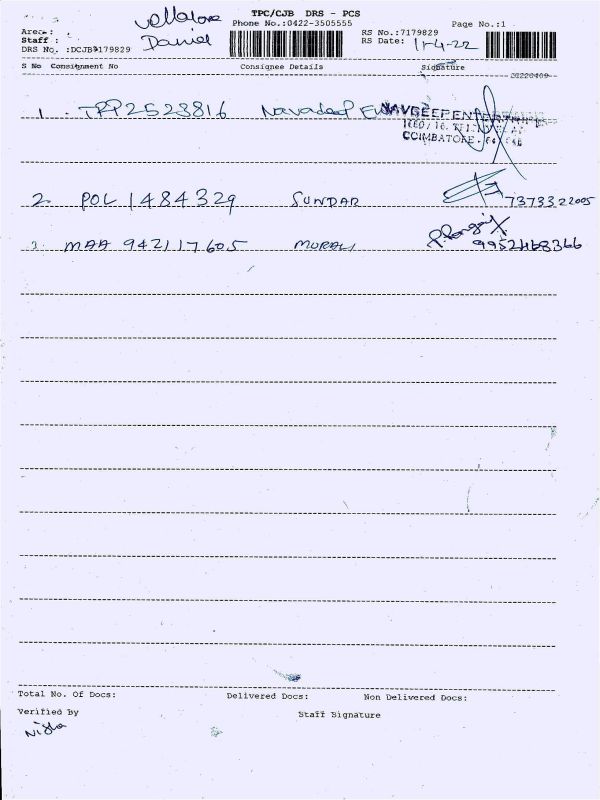 TPC/CJB DRS - PCS
Vellalore
Phone No.:0422-3505555
Page No.:1
Area :
Staff : Daniel
RS No.:7179829
RS Date: 1-4-22
DRS No. :DCJB7179829
S No Consignment No Consignee Details Signature
20220409
1. TPP2523816 Navadeep
COIMBATORE
2. POL 1484329 SUNDAR 7373322005
3. MAA 942117605 MURALI 9952468366
Total No. Of Docs: Delivered Docs: Non Delivered Docs:
Verified By Staff Signature
Nisha